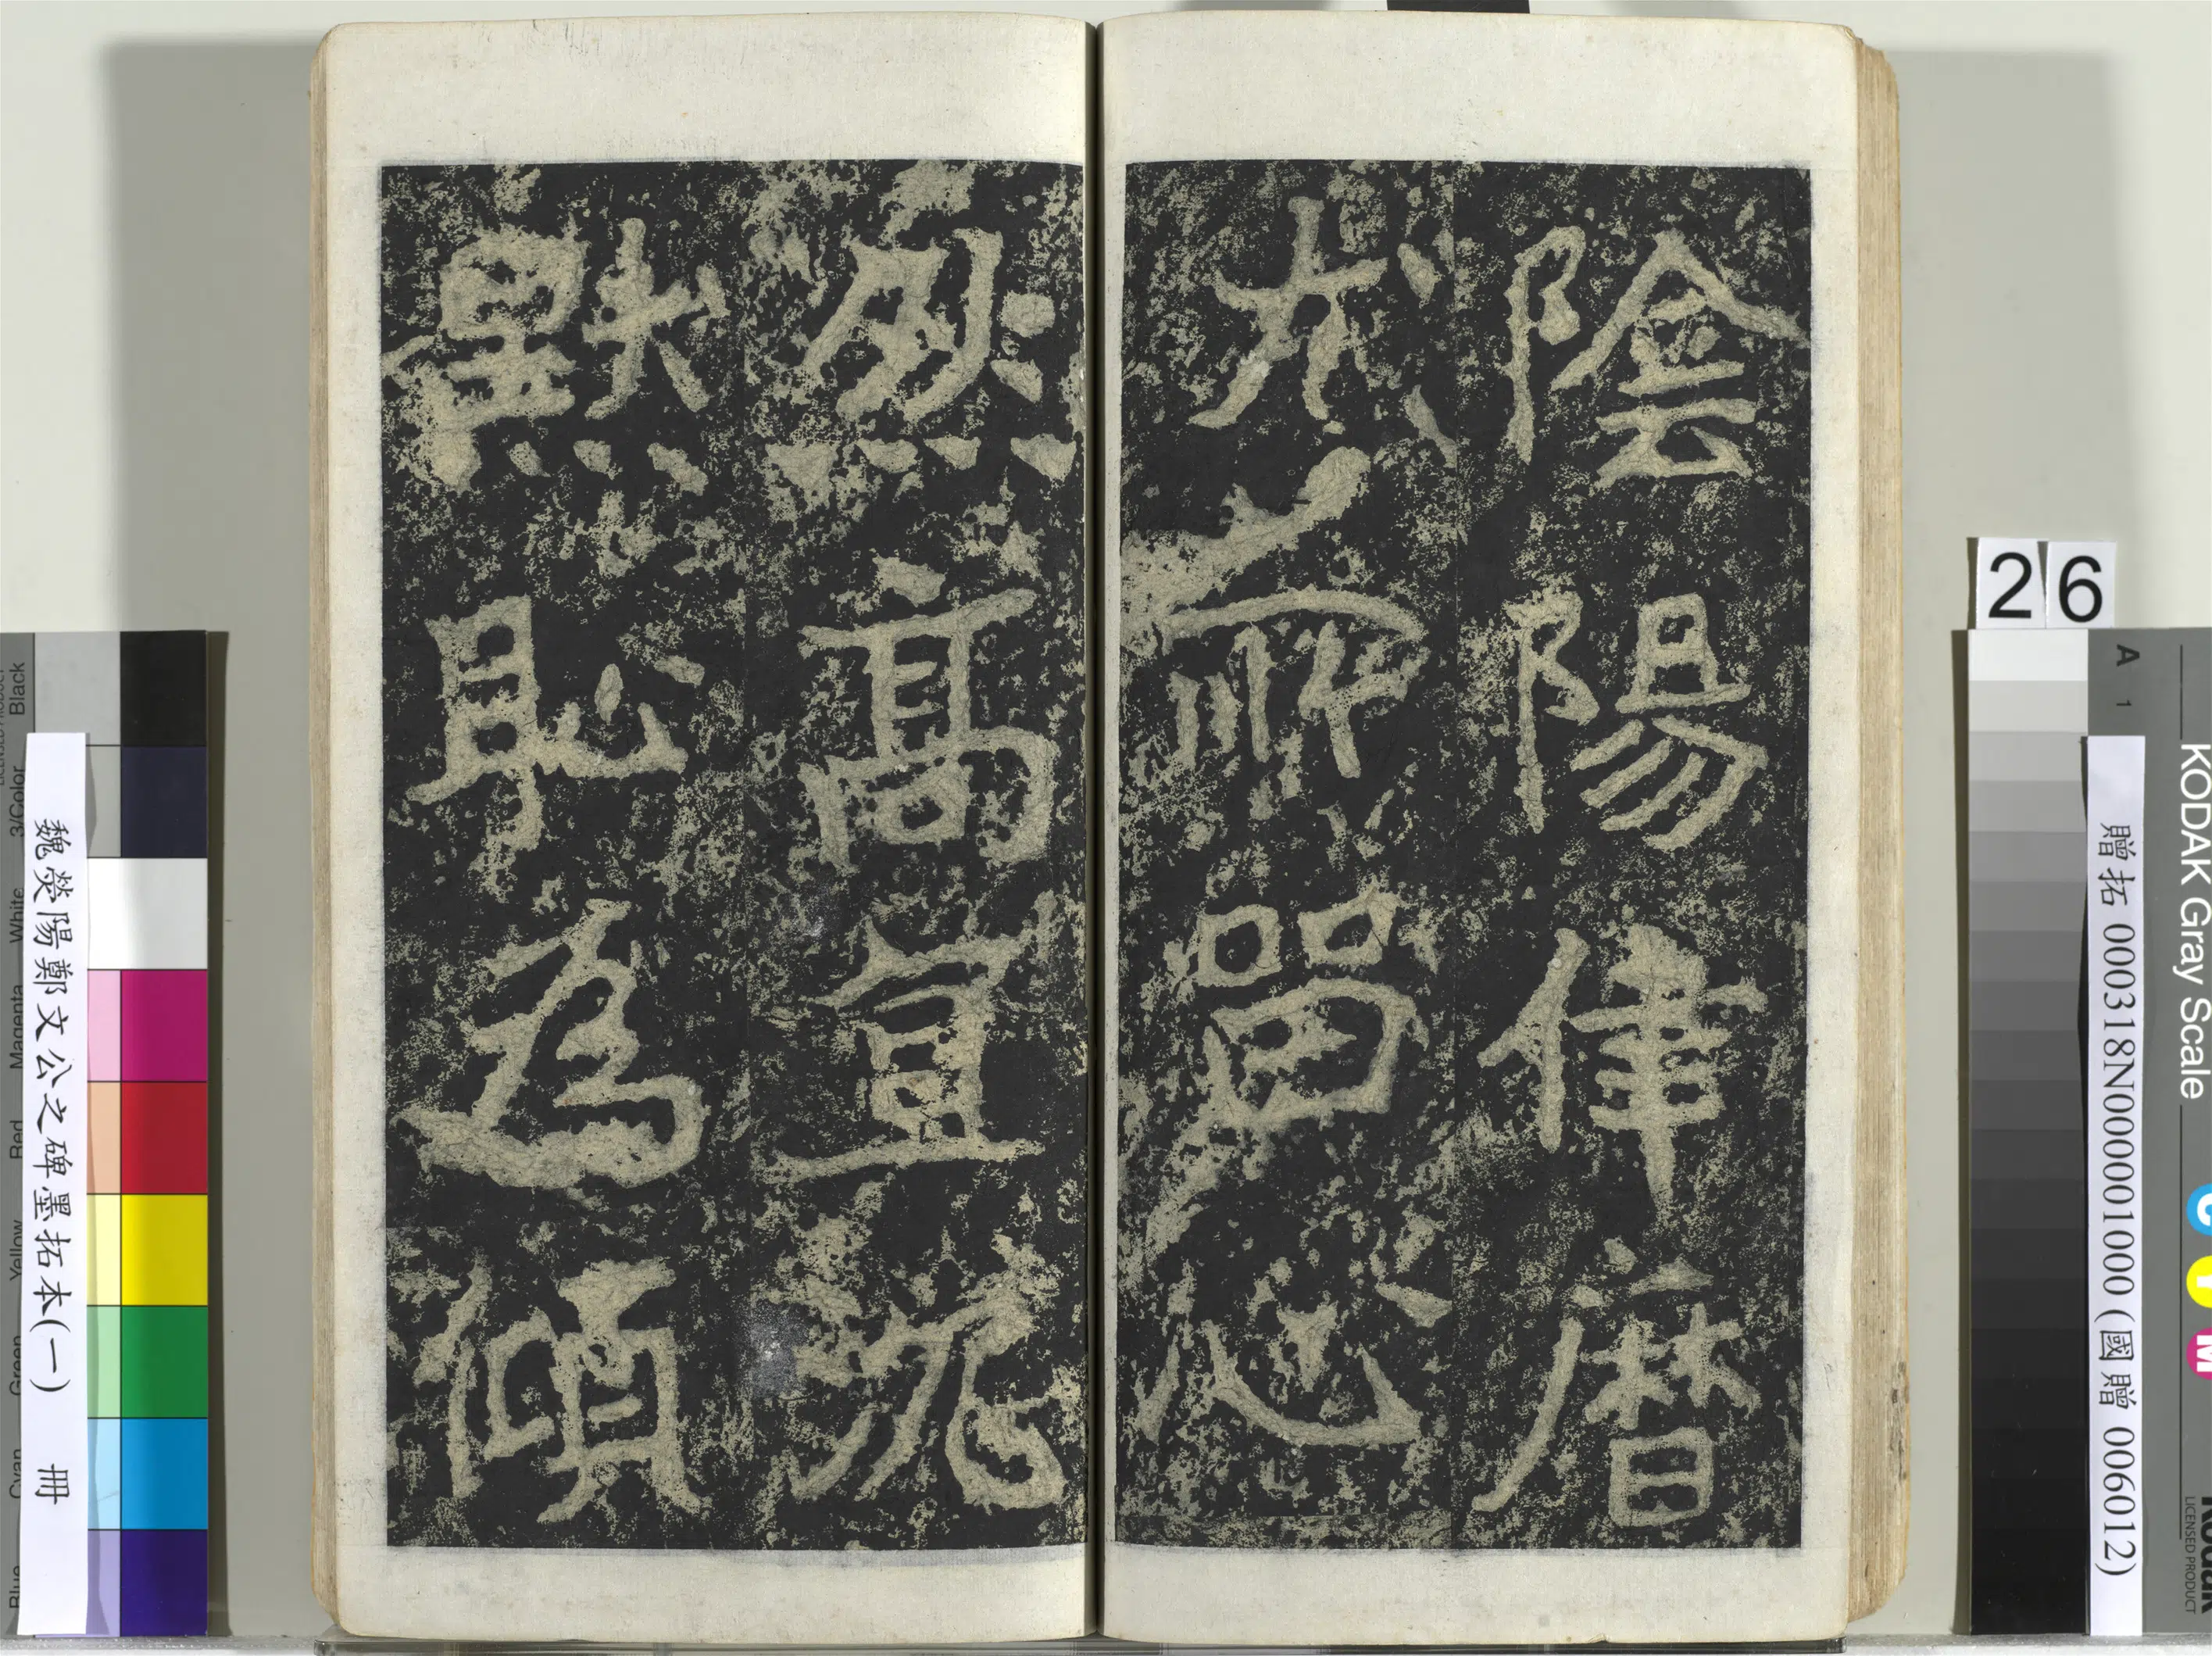 陰陽律暦
尤所留心
然高直沉
默耻為傾
26
A 1
KODAK Gray Scale
C Y M
Kodak
LICENSED PRODUCT
贈拓 000318N000001000 (國贈 006012)
魏滎陽鄭文公之碑墨拓本(一) 冊
Blue Cyan Green Yellow Red Magenta White 3/Color Black